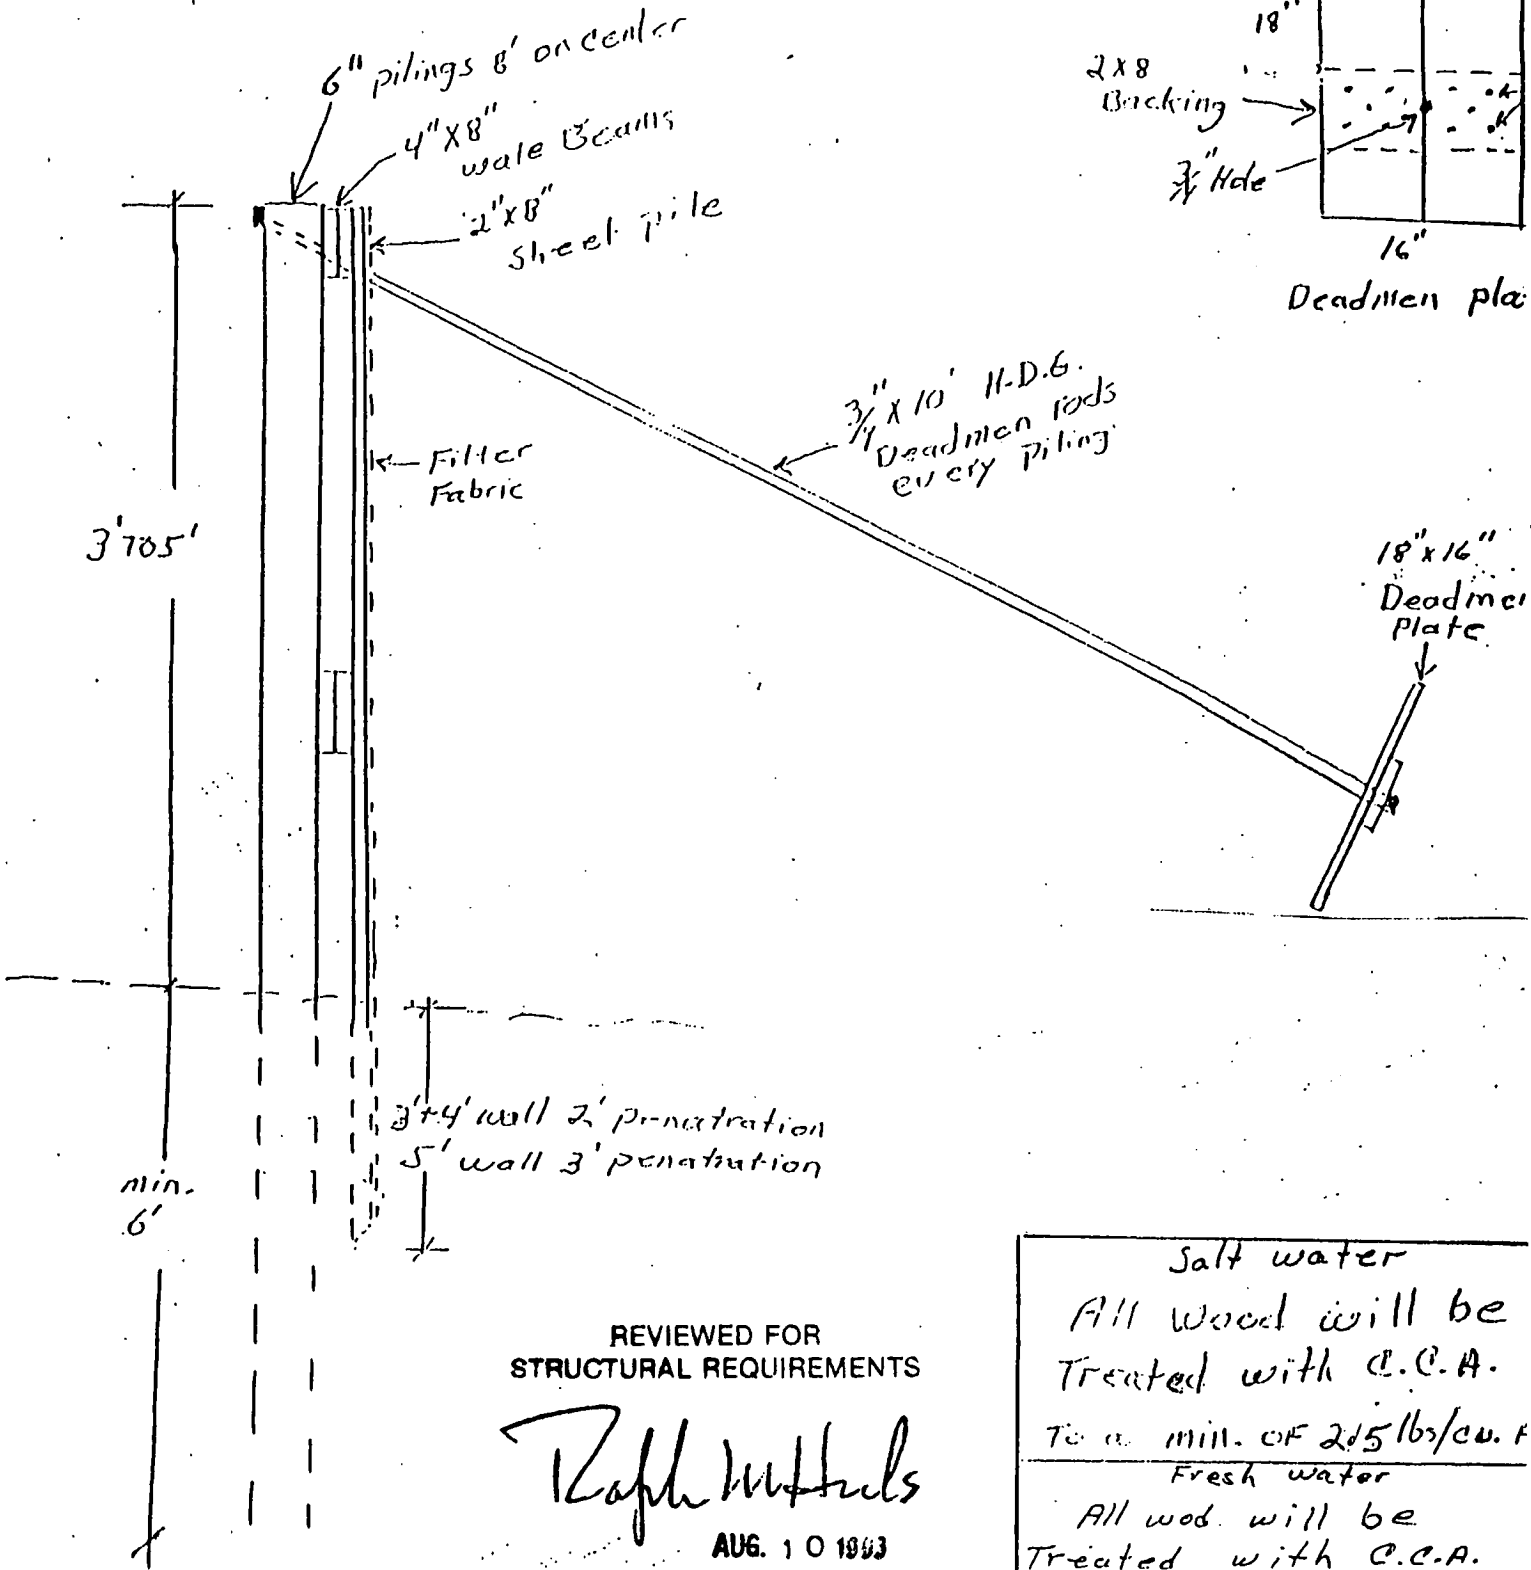 6" pilings 8' on center
4"X8"
wale Beams
2"X8"
Sheet pile
18"
2X8
Backing
3/4" Hole
16"
Deadmen pla
3/4" X 10' H.D.G.
Deadmen rods
every piling
Filter
Fabric
3'TO5'
18"x16"
Deadmen
Plate
3'+4' wall 2' penatration
5' wall 3' penatration
min.
6'
REVIEWED FOR
STRUCTURAL REQUIREMENTS
AUG. 10 1993
Salt water
All Wood will be
Treated with C.C.A.
To a min. OF 2.5 lbs/cu. F
Fresh water
All wod. will be
Treated with C.C.A.